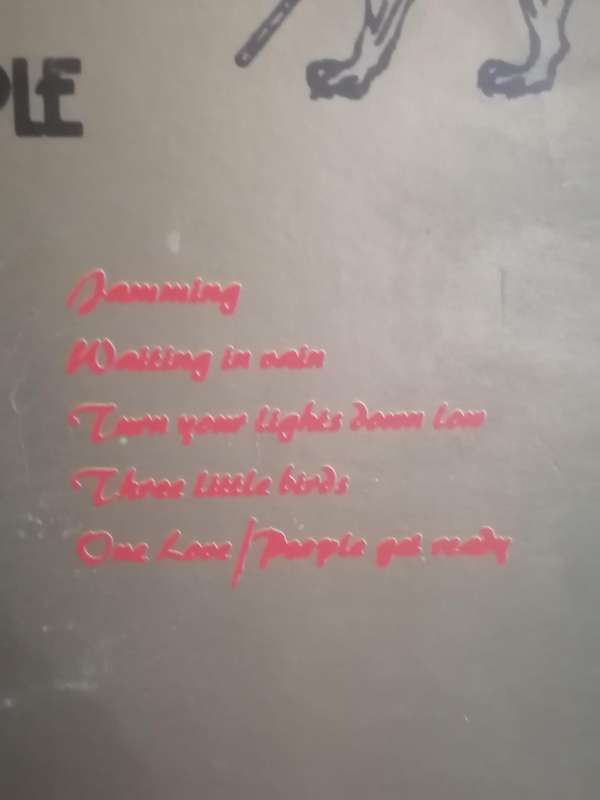 PLE
Jamming
Waiting in vain
Turn your lights down low
Three little birds
One Love/People get ready